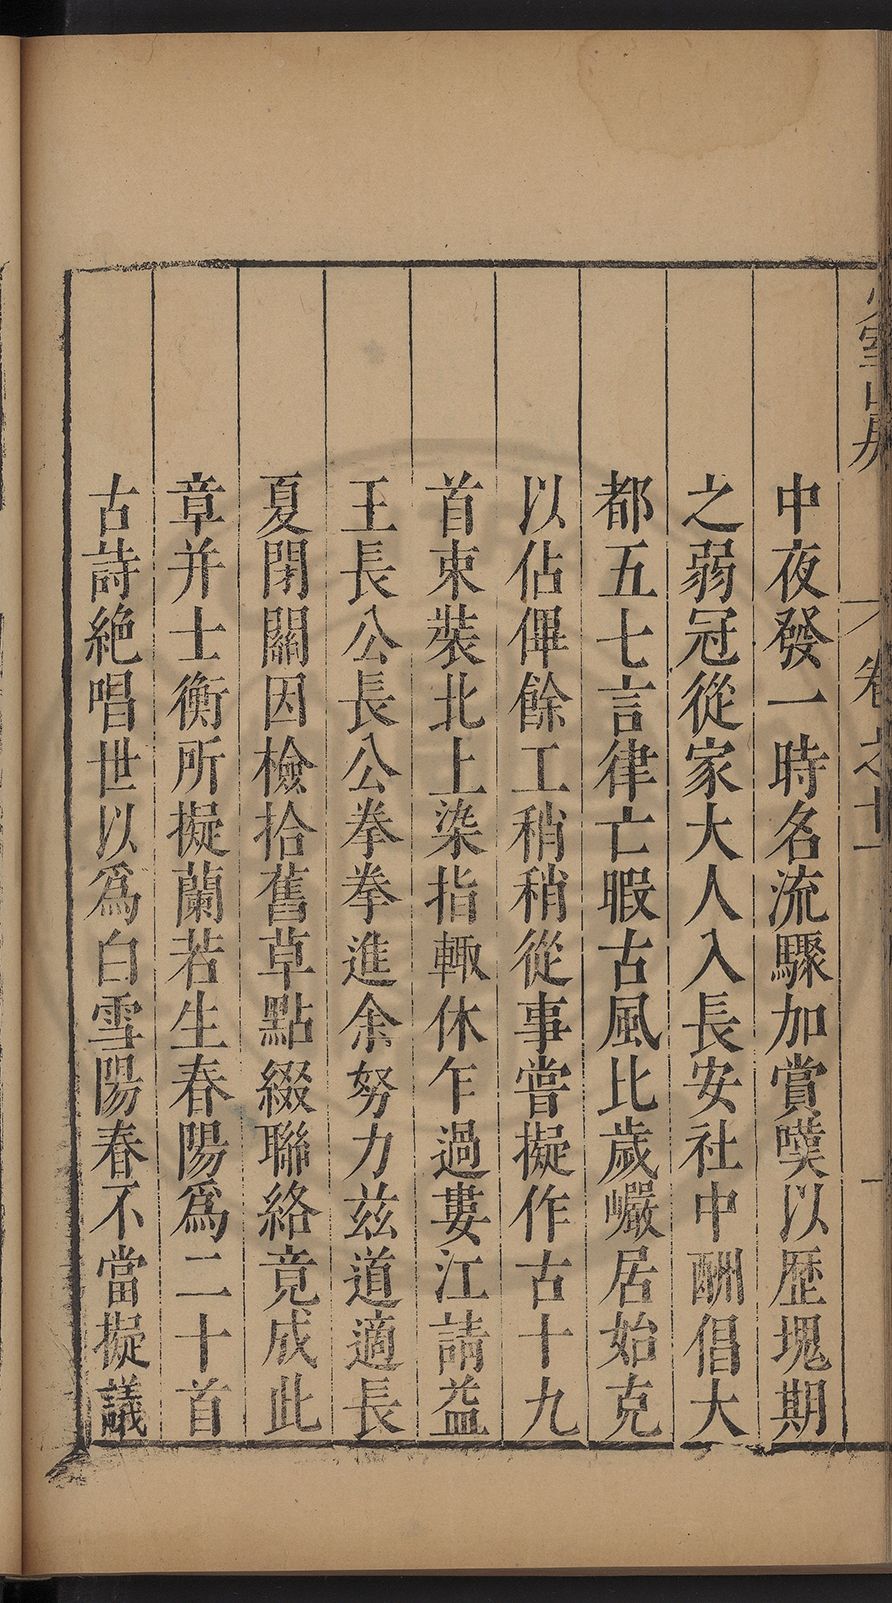 少室山房
卷之十一
中夜發一時名流驟加賞嘆以歷塊期
之弱冠從家大人入長安社中酬倡大
都五七言律亡暇古風比歲巖居始克
以佔俾餘工稍稍從事嘗擬作古十九
首束裝北上染指輙休乍過婁江請益
王長公長公拳拳進余努力兹道適長
夏閉關因檢拾舊草點綴聯絡竟成此
章并士衡所擬蘭若生春陽爲二十首
古詩絶唱世以爲白雪陽春不當擬議